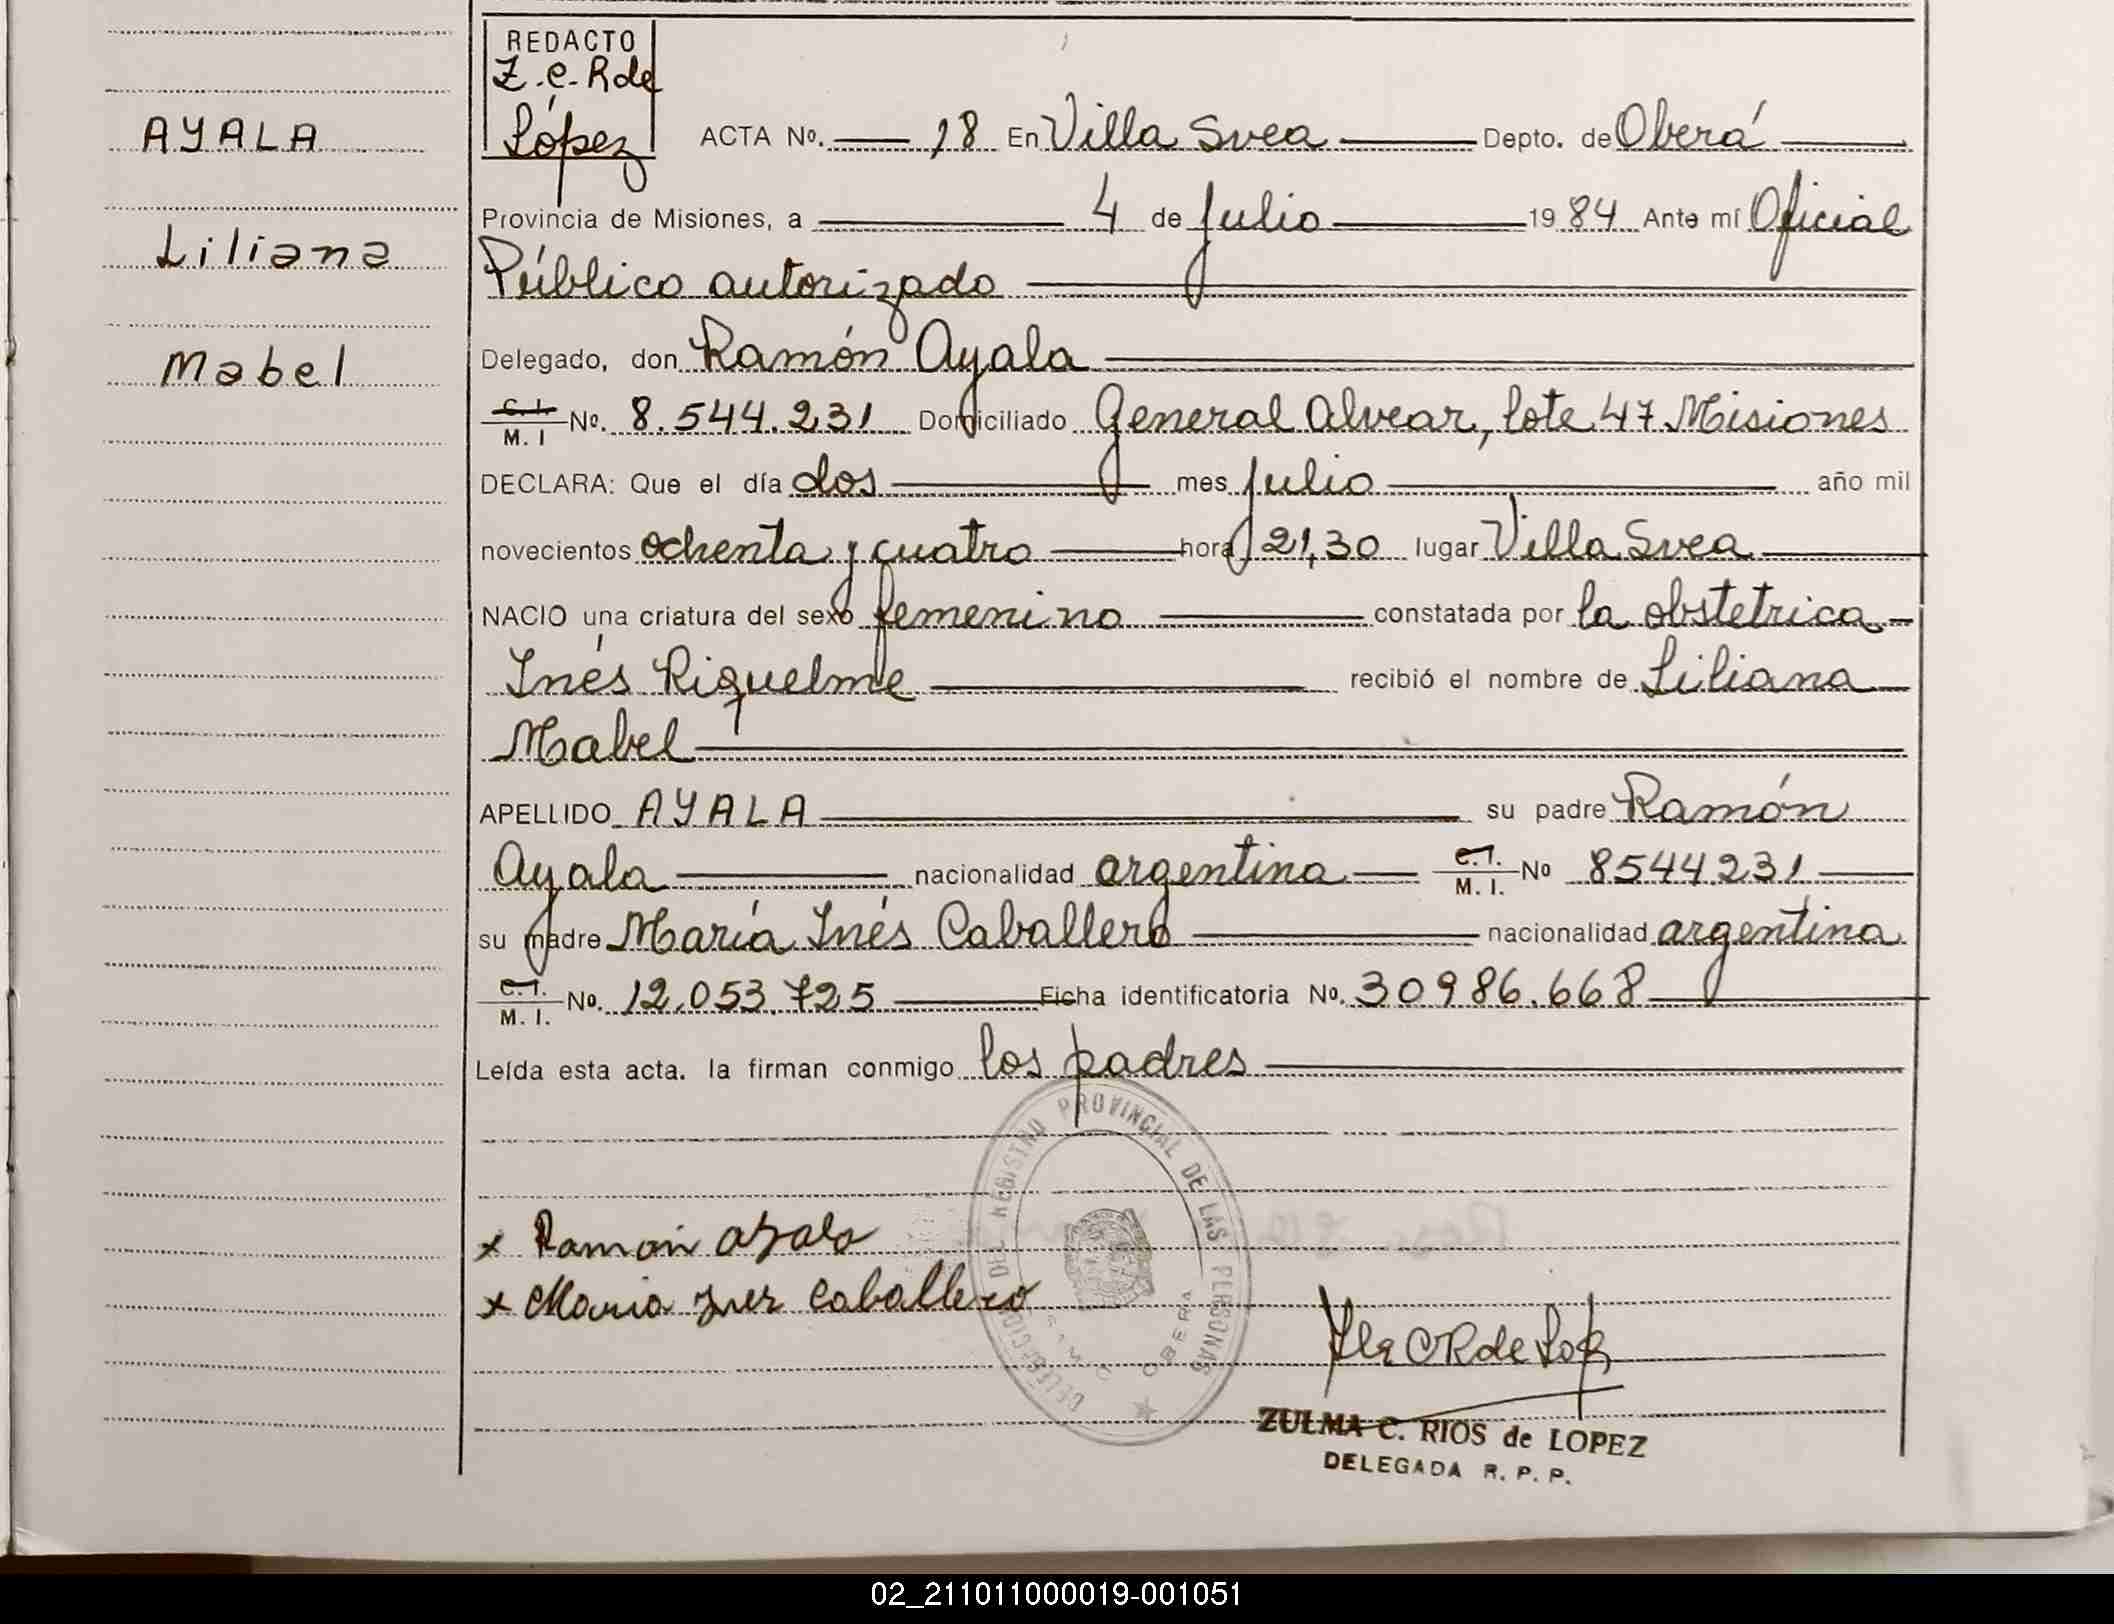 REDACTO
Z.C. R de
López
AYALA
Liliana
Mabel
ACTA Nº. 18 En Villa Svea Depto. de Oberá
Provincia de Misiones, a 4 de Julio 1984 Ante mí Oficial
Público autorizado
Delegado, don Ramón Ayala
C.I. M. I Nº. 8.544.231 Domiciliado General Alvear, lote 47 Misiones
DECLARA: Que el día dos mes Julio año mil
novecientos ochenta y cuatro hora 21,30 lugar Villa Svea
NACIO una criatura del sexo femenino constatada por la obstetrica
Inés Riquelme recibió el nombre de Liliana
Mabel
APELLIDO AYALA su padre Ramón
Ayala nacionalidad argentina C.I. M. I. Nº 8544231
su madre María Inés Caballero nacionalidad argentina
C.I. M. I. Nº. 12.053.725 Ficha identificatoria Nº. 30986.668
Leída esta acta. la firman conmigo los padres
DELEGACION DEL REGISTRO PROVINCIAL DE LAS PERSONAS
OBERA
x Ramon Ayala
x Maria Ines Caballero
ZULMA C. RIOS de LOPEZ
DELEGADA R. P. P.
02_211011000019-001051